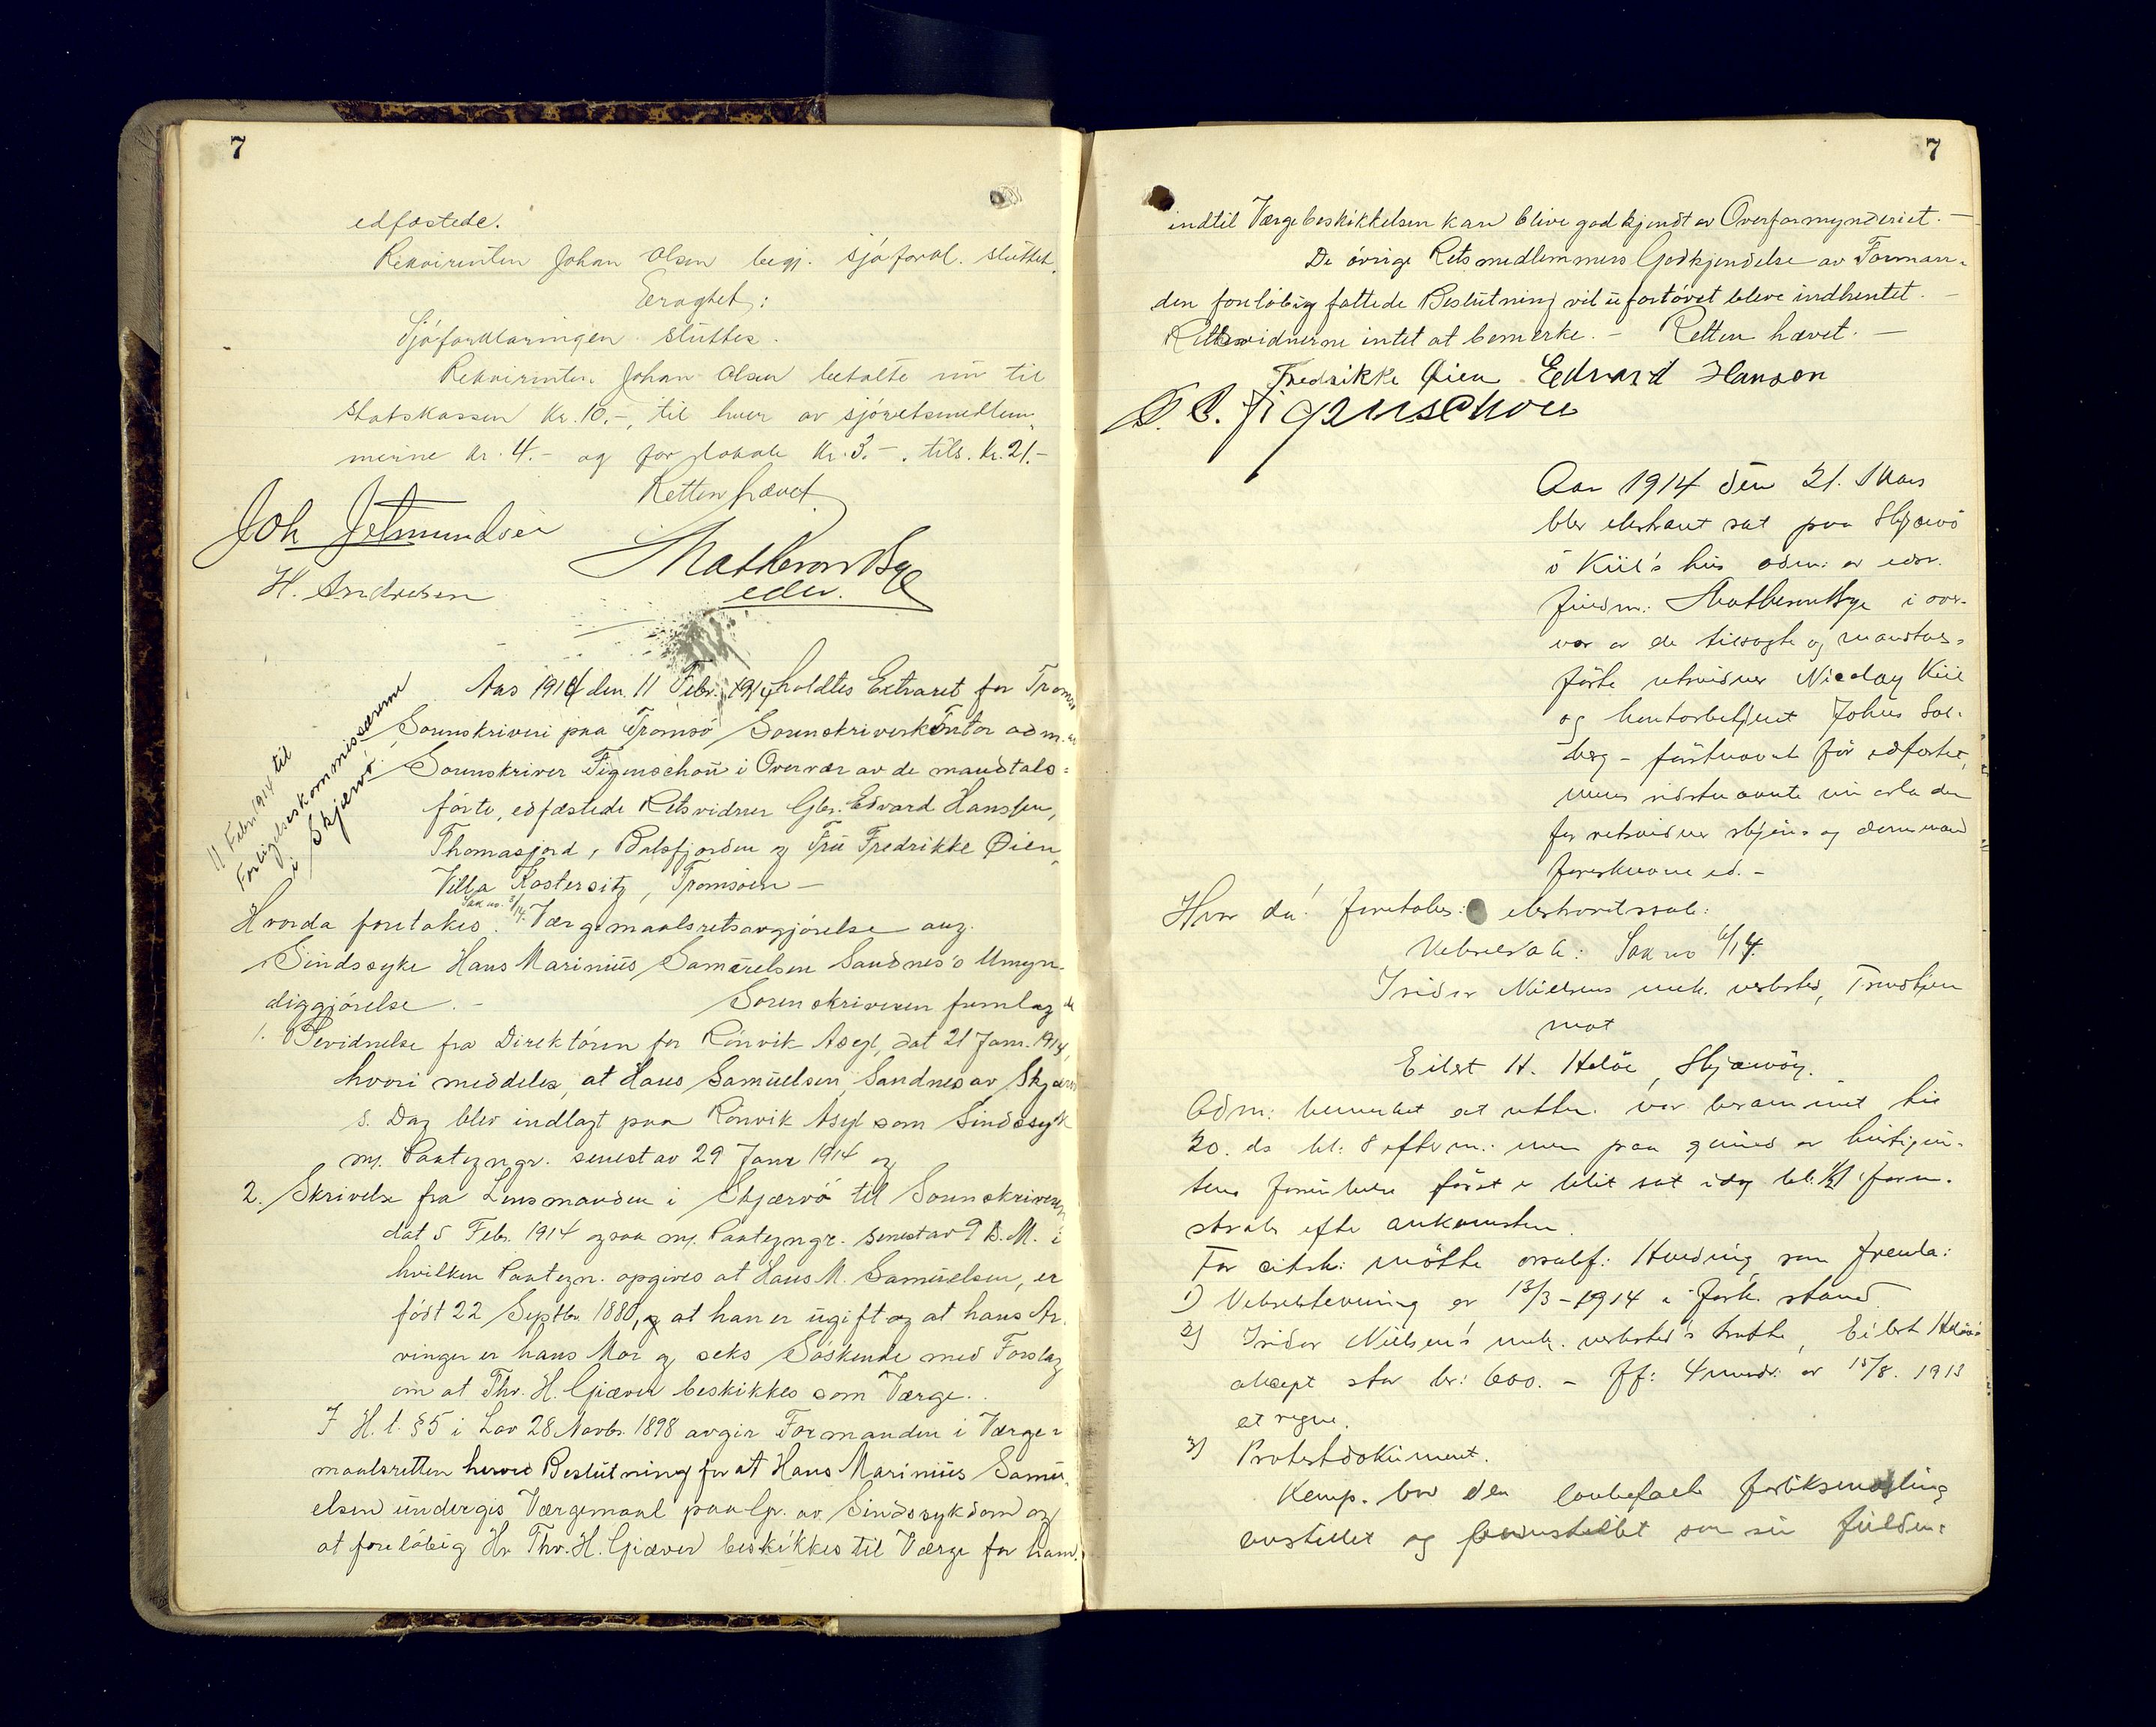 7
edfæstede.
Rekvirenten Johan Olsen begj. sjöforkl. sluttet.
Eragtet:
Sjöforklaringen sluttes.
Rekvirenten Johan Olsen betalte nu til
statskassen kr. 10.-, til hver av sjöretsmedlem-
merne kr. 4.- og for lokale kr. 3.-. tils. kr. 21.-
Retten hævet
Joh
H. Andresen
edsv.
Aar 1914 den 11 Febr. 1914 holdtes Extraret for Tromsø
Sorenskriveri paa Tromsö Sorenskriverkontor adm. av
Sorenskriver Figenschou i Overvær av de mandtals-
förte, edfæstede Retsvidner Gbr. Edvard Hanssen,
Thomasjord, Balsfjorden og Fru Fredrikke Øien,
Villa Kostersitz, Tromsöen —
11 Febr. 1914 til
Forligelseskommissærerne
i Skjervö.
Sak no. 8/14.
Hvorda foretakes: Værgemaalsretsavgjörelse ang.
Sindssyke Hans Marinius Samuelsen Sandnes's Umyn-
diggjörelse. - Sorenskriveren fremlagde
1. Bevidnelse fra Direktören for Rönvik Asyl, dat 21 Janr. 1914,
hvori meddeles, at Hans Samuelsen, Sandnes av Skjervö
s. Dag blev indlagt paa Rönvik Asyl som Sindssyk
m. Paategngr. senest av 29 Janr 1914 og
2. Skrivelse fra Lensmanden i Skjærvö til Sorenskriveren
dat 5 Febr. 1914 ogsaa m. Paategngr. senest av 9 d. M. i
hvilken Paategn. opgives at Hans M. Samuelsen, er
födt 22 Septbr. 1880, og at han er ugift og at hans Ar-
vinger er hans Mor og seks Söskende med Forslag
om at Thv. H. Giæver beskikkes som Værge.
I H. t. § 5 i Lov 28 Novbr. 1898 avgir Formanden i Værge-
maalsretten herved Beslutning for at Hans Marinius Samu-
elsen undergis Værgemaal paa Gr. av Sindssykdom og
at foreløbig Hr Thv. H. Giæver beskikkes til Værge for ham.
7
indtil Værgebeskikkelsen kan blive godkjendt av Overformynderiet. —
De övrige Retsmedlemmers Godkjendelse av Forman-
den foreløbig fattede Beslutning vil ufortövet bleve indhentet. —
Retsvidnerne intet at bemerke. — Retten hævet. —
Fredrikke Øien Edvard Hanssen
Figenschou
Aar 1914 den 21. Mars
blev ekstraret sat paa Skjærvö
i Kiil's hus adm: av edsv.
fuldm: i over-
vær av de tilsagte og mandtals-
förte retsvidner Nicolay Kiil
og kontorbetjent Johns Sol-
berg — förstnævnte för edfæstet,
mens sidstnævnte nu avla den
for retsvidner skjön- og dommænd
foreskrevne ed. —
Hvor da! foretokes: ekstraretssak:
Vekselsak: Sak no 6/14.
Isidor Nielsens mek. verksted, Trondhjem
mot
Eilert H. Helöe, Skjærvöy.
Adm: bemerket at retten var berammet til
20. ds kl: 8 efterm: men paa grund av hurtigru-
tens forsinkelse först er blit sat idag kl. 1/21 form.
straks efter ankomsten.
For citsk: mötte ovrsakf: som fremla:
1) Vekselstevning av 13/3-1914 i fork. stand
2) Isidor Nielsen's mek. verksted's tratte, Eilert Helöe's
aksept stor kr: 600. — ff: 4 mndr. av 15/8. 1913
at regne.
3) Protestdokument.
Komp. har den lovbefalte forliksmægling
anstillet og som sin fuldm: